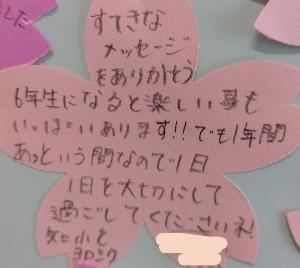 した
すてきな
メッセージ
をありがとう
6年生になると楽しい事も
いっぱいあります!!でも1年間
あっという間なので1日
1日を大切にして
過ごしてくださいネ!
知小を
ヨロシク